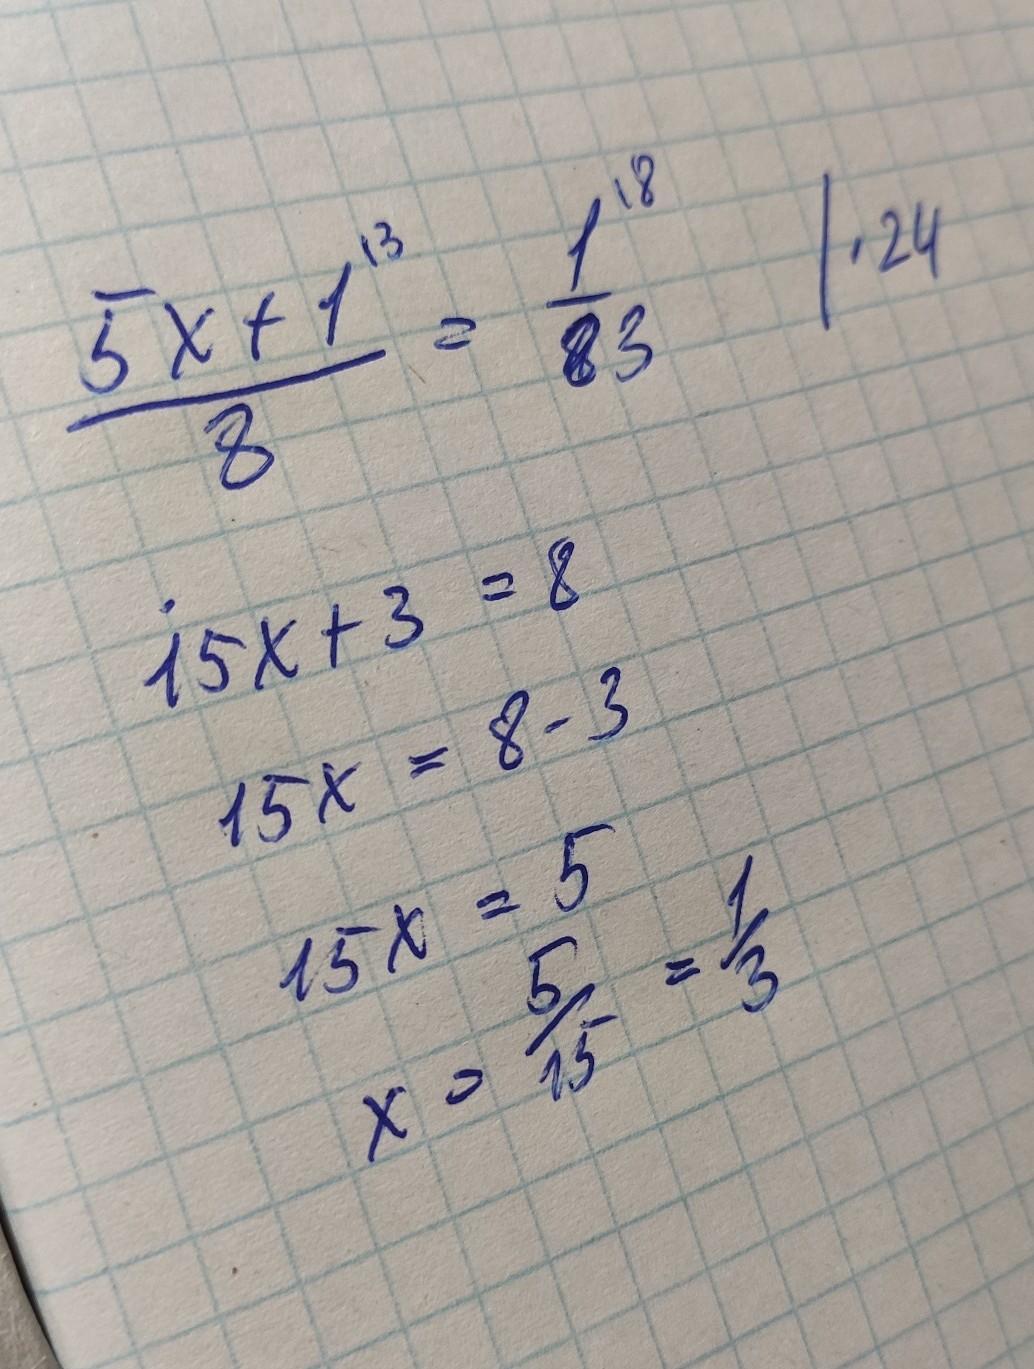 (5x+1)^{\3}/8 = 1^{\8}/3 | · 24
15x + 3 = 8
15x = 8 - 3
15x = 5
x = 5/15 = 1/3